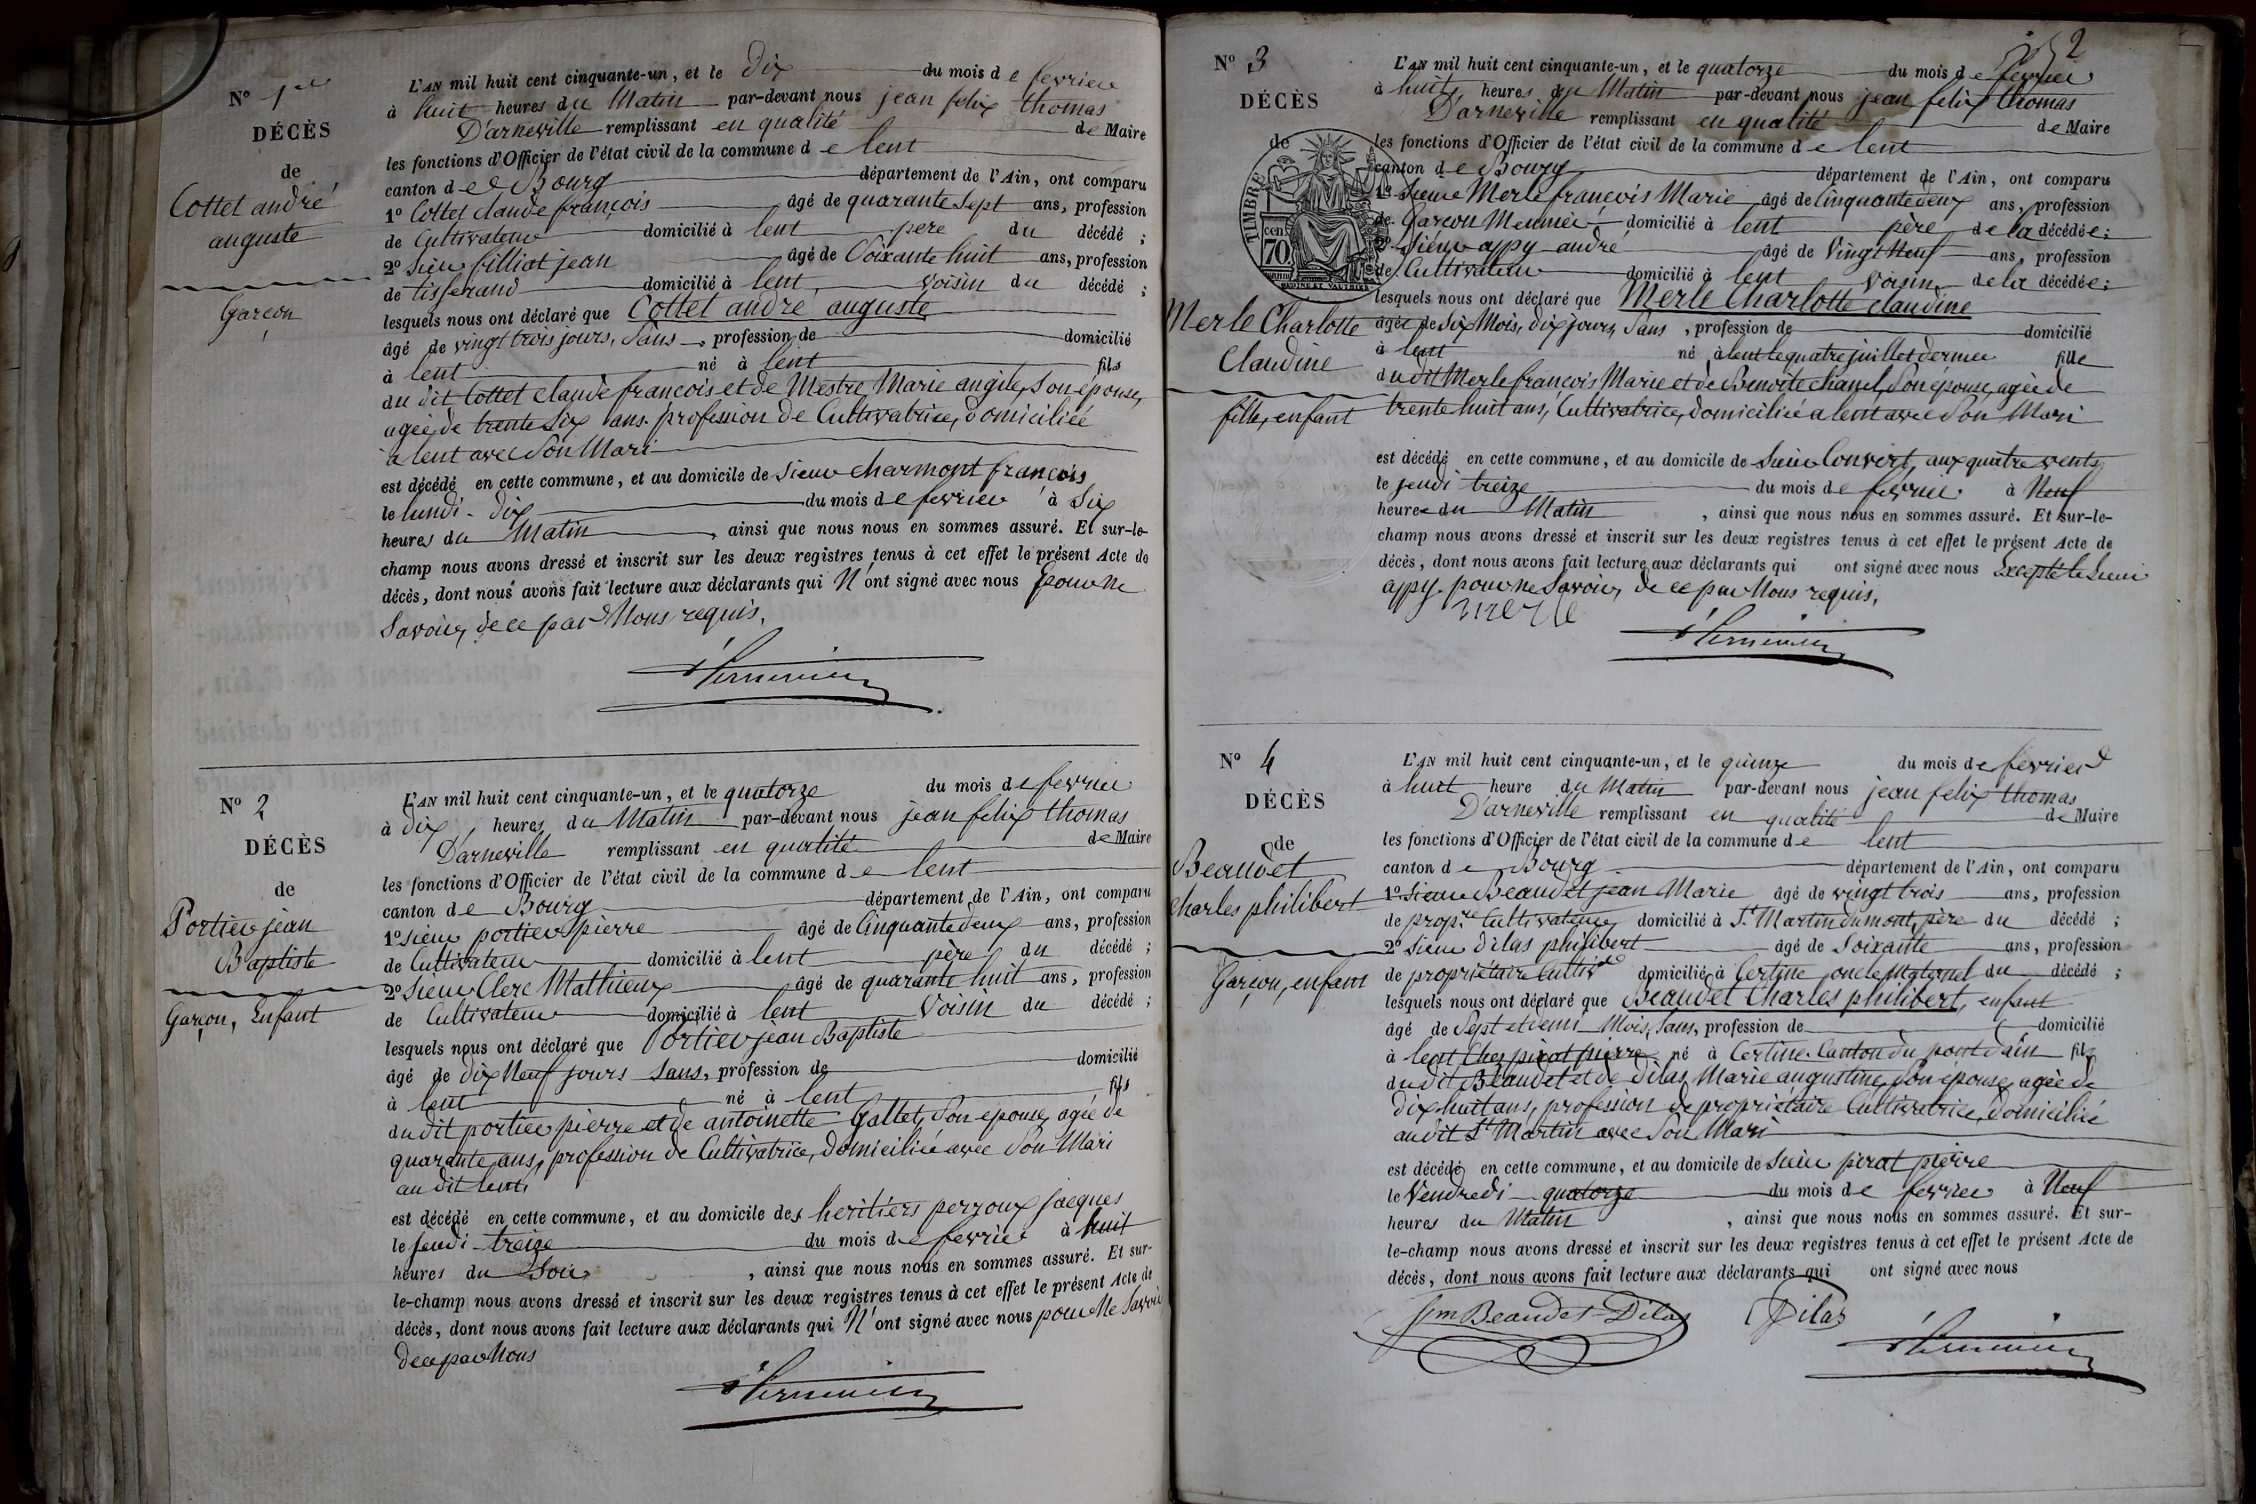 N° 1er
DÉCÈS
de
Cottet andré
auguste
Garçon
L'AN mil huit cent cinquante-un, et le dix du mois de fevrier
à huit heures du Matin par-devant nous jean felix thomas
D'arneville remplissant en qualité de Maire
les fonctions d'Officier de l'état civil de la commune de lent
canton de Bourg département de l'Ain, ont comparu
1° Cottet claude françois âgé de quarante Sept ans, profession
de Cultivateur domicilié à lent père du décédé;
2° Sieur filliat jean âgé de Soixante huit ans, profession
de tisserand domicilié à lent, voisin du décédé;
lesquels nous ont déclaré que Cottet andré auguste
âgé de vingt trois jours, Sans, profession de domicilié
à lent né à lent fils
du dit Cottet claude francois et de Mestre Marie angile, Son épouse,
agée de trente Six ans. profession de Cultivatrice, domiciliée
a lent avec Son Mari
est décédé en cette commune, et au domicile de Sieur Charmont françois
le lundi dix du mois de fevrier à Six
heures du Matin, ainsi que nous nous en sommes assuré. Et sur-le-
champ nous avons dressé et inscrit sur les deux registres tenus à cet effet le présent Acte de
décès, dont nous avons fait lecture aux déclarants qui N'ont signé avec nous pour ne
Savoir, de ce par Nous requis.
N° 2
DÉCÈS
de
Portier jean
Baptiste
Garçon, Enfant
L'AN mil huit cent cinquante-un, et le quatorze du mois de fevrier
à dix heures du Matin par-devant nous jean felix thomas
D'arneville remplissant en qualité de Maire
les fonctions d'Officier de l'état civil de la commune de lent
canton de Bourg département de l'Ain, ont comparu
1° Sieur portier pierre âgé de Cinquante deux ans, profession
de Cultivateur domicilié à lent père du décédé;
2° Sieur Clerc Mathieux âgé de quarante huit ans, profession
de Cultivateur domicilié à lent Voisin du décédé;
lesquels nous ont déclaré que Portier jean Baptiste
âgé de dix Neuf jours Sans, profession de domicilié
à lent né à lent fils
du dit portier pierre et de antoinette Gallet, Son epouse, agée de
quarante ans, profession de Cultivatrice, domiciliée avec Son Mari
au dit lent,
est décédé en cette commune, et au domicile des heritiers perroux jacques
le jeudi treize du mois de fevrier à huit
heures du Soir, ainsi que nous nous en sommes assuré. Et sur-
le-champ nous avons dressé et inscrit sur les deux registres tenus à cet effet le présent Acte de
décès, dont nous avons fait lecture aux déclarants qui N'ont signé avec nous pour Ne Savoir
de ce par Nous
2
N° 3
DÉCÈS
de
TIMBRE
cen 70
Merle Charlotte
Claudine
fille, enfant
L'AN mil huit cent cinquante-un, et le quatorze du mois de fevrier
à huit heures du Matin par-devant nous jean felix thomas
D'arneville remplissant en qualité de Maire
les fonctions d'Officier de l'état civil de la commune de lent
canton de Bourg département de l'Ain, ont comparu
1° Sieur Merle françois Marie âgé de Cinquante deux ans, profession
de Garçon Meunier domicilié à lent père de la décédée;
2° Sieur appy andré âgé de Vingt Neuf ans, profession
de Cultivateur domicilié à lent Voisin de la décédée;
lesquels nous ont déclaré que Merle Charlotte claudine
âgée de Six Mois, dix jours, Sans, profession de domicilié
à lent né à lent le quatre juillet dernier fille
du dit Merle francois Marie et de Benoite chanel, Son épouse, agée de
trente huit ans, Cultivatrice, domiciliée a lent avec Son Mari
est décédé en cette commune, et au domicile de Sieur Convert, aux quatre vents
le jeudi treize du mois de fevrier à Neuf
heures du Matin, ainsi que nous nous en sommes assuré. Et sur-le-
champ nous avons dressé et inscrit sur les deux registres tenus à cet effet le présent Acte de
décès, dont nous avons fait lecture aux déclarants qui ont signé avec nous Excepté le Sieur
appy, pour ne Savoir, de ce par Nous requis.
merle
N° 4
DÉCÈS
de
Beaudet
Charles philibert
Garçon, enfant
L'AN mil huit cent cinquante-un, et le quinze du mois de fevrier
à huit heure du Matin par-devant nous jean felix thomas
D'arneville remplissant en qualité de Maire
les fonctions d'Officier de l'état civil de la commune de lent
canton de Bourg département de l'Ain, ont comparu
1° Sieur Beaudet jean Marie âgé de vingt trois ans, profession
de propre Cultivateur domicilié à St Martin dumont, père du décédé;
2° Sieur Dilas philibert âgé de Soixante ans, profession
de propriétaire Cultivr domicilié à Certine oncle Maternel du décédé;
lesquels nous ont déclaré que Beaudet Charles philibert, enfant
âgé de Sept et demi Mois, Sans, profession de domicilié
à lent Chez pirat pierre né à Certine Canton du pont dain fils
du dit Beaudet et de Dilas Marie augustine, Son epouse, agée de
dix huit ans, profession de propriétaire Cultivatrice, domiciliée
au dit St Martin avec Son Mari
est décédé en cette commune, et au domicile de Sieur pirat pierre
le Vendredi quatorze du mois de fevrier à Neuf
heures du Matin, ainsi que nous nous en sommes assuré. Et sur-
le-champ nous avons dressé et inscrit sur les deux registres tenus à cet effet le présent Acte de
décès, dont nous avons fait lecture aux déclarants qui ont signé avec nous
jm Beaudet-Dilas Dilas